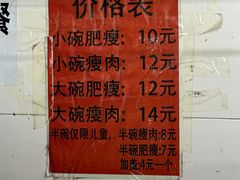 价格表
小碗肥瘦：10元
小碗瘦肉：12元
大碗肥瘦：12元
大碗瘦肉：14元
半碗仅限儿童，半碗瘦肉:8元
半碗肥瘦:7元
加馍:4元一个